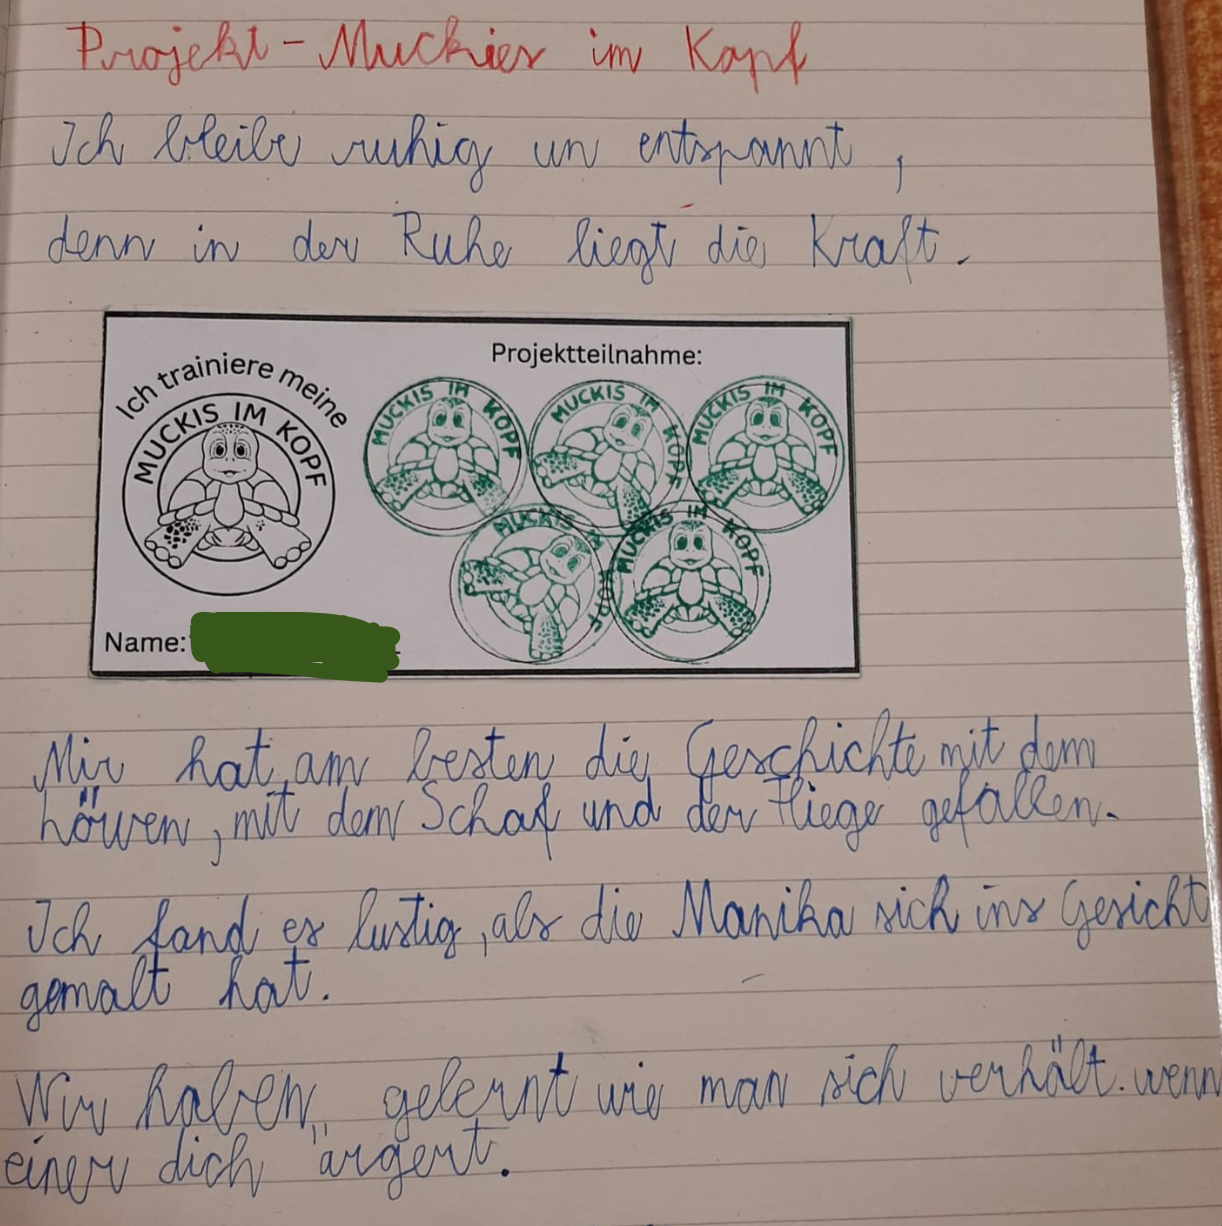 Projekt - Muckies im Kopf
Ich bleibe ruhig un entspannt,
denn in der Ruhe liegt die Kraft.
Ich trainiere meine
MUCKIS IM KOPF
Projektteilnahme:
MUCKIS IM KOPF
MUCKIS IM KOPF
MUCKIS IM KOPF
MUCKIS IM KOPF
MUCKIS IM KOPF
Name:
Mir hat am besten die Geschichte mit dem
hörven, mit dem Schaf und der Fliege gefallen.
Ich fand es lustig, als die Manika sich ins Gesicht
gemalt hat.
Wir haben gelernt wie man sich verhält. wenn
einer dich ärgert.